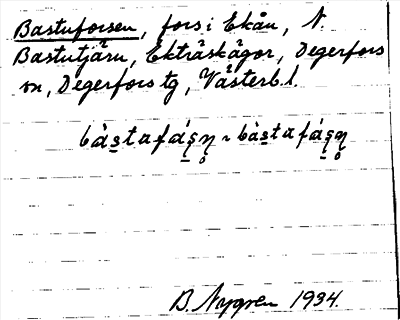 Bastuforsen, fors i Ekån, N.
Bastutjärn, Ekträskågor, Degerfors
sn, Degerfors tg, Västerb. l.
B. Nygren 1934.